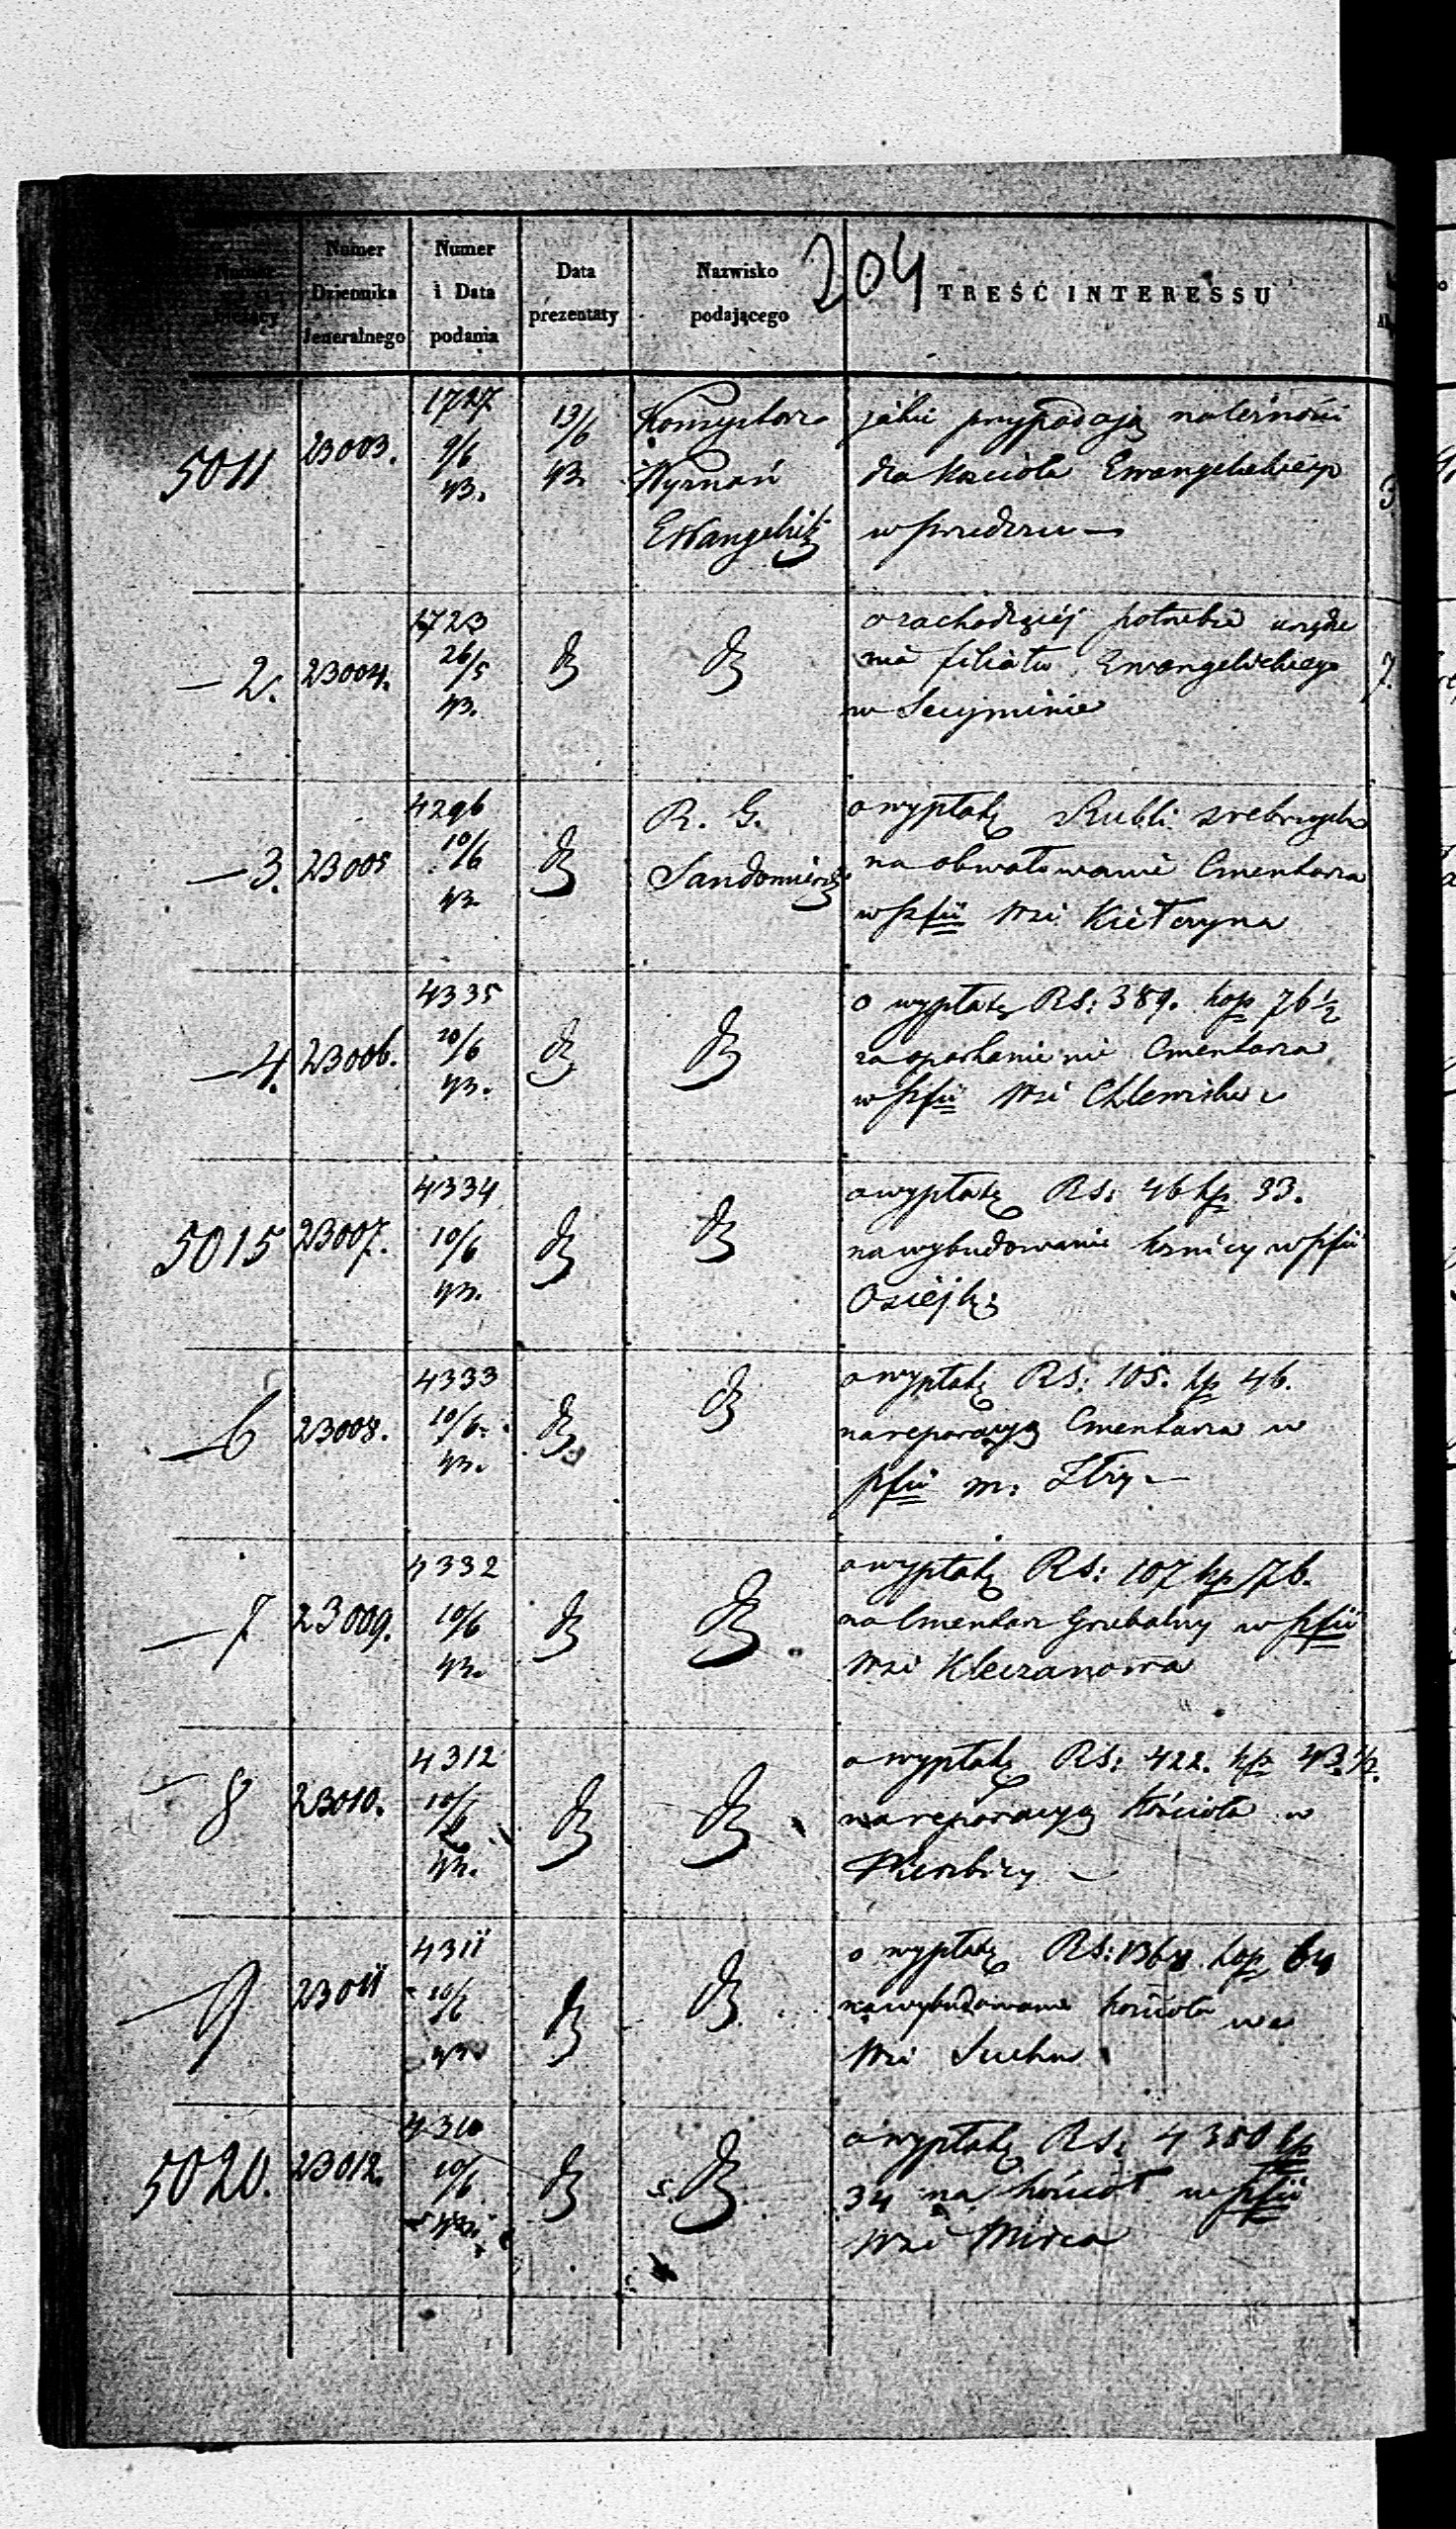 204
Numer Dziennika Jeneralnego
Numer i Data podania
Data prezentaty
Nazwisko podającego
TREŚĆ INTERESSU
5011
23003.
1727
9/6
43.
13/6
43
Konsystorz
Wyznań
Ewangelick
jakie przypadają należności
dla kościoła Ewangelickiego
w
— 2.
23004.
1723
26/5
43.
o zachodzącéj potrzebie urządze
nia filiału Ewangelickiego
w Secyminie
— 3.
23005
4296
10/6
43
R. G.
Sandomiersk
o wypłatę Rubli srebrnych
na obwałowanie Cmentarza
w pfii Wsi Kiełczyna
— 4.
23006.
4335
10/6
43.
o wypłatę RS: 389. kop 76 1/2
za oparkanienie Cmentarza
w pfii Wsi Chlewiska
5015
23007.
4334
10/6
43.
o wypłatę RS: 46 kp 33.
na wybudowanie kośnicy w pfii
Osiejk
— 6
23008.
4333
10/6
43.
o wypłatę RS: 105. kp 46.
na reparacyą Cmentarza w
pfii m: Iłży
— 7
23009.
4332
10/6
43.
o wypłatę RS: 107 kp 76.
na Cmentarz Grzebalny w pfii
Wsi Kleczanowa
— 8
23010.
4312
10/6
43.
o wypłatę RS: 422. kp 43 1/2.
na reparacyą kościoła w
Wierzbicy
— 9
23011
4311
10/6
43
o wypłatę RS: kop 64
na wybudowanie kościoła we
Wsi Sucha
5020.
23012.
4310
10/6
43
o wypłatę RS: 4350 kp
34 na kościoł w pfii
Wsi Mirca